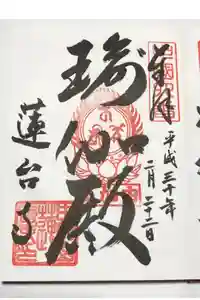 奉拝
平成三十年
二月二十二日
瑜伽殿
蓮台寺